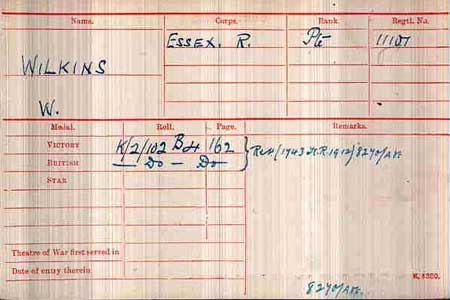 Name. Corps. Rank. Regtl. No.
WILKINS ESSEX. R. Pte 11107
W.
Medal. Roll. Page. Remarks.
VICTORY K/2/102 B4 162
BRITISH — Do — Do
STAR
Theatre of War first served in
Date of entry therein
K. 1380.
8270/AR.